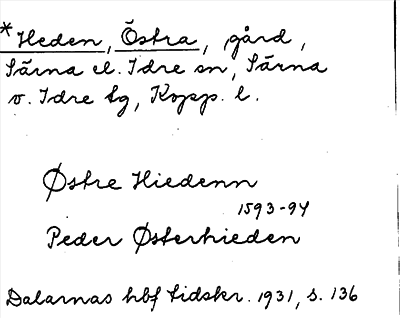 *Heden, Östra, gård,
Särna el. Idre sn, Särna
o. Idre tg, Kopp. l.
Østre Hiedenn
1593-94
Peder Østerhieden
Dalarnas hbf tidskr. 1931, s. 136